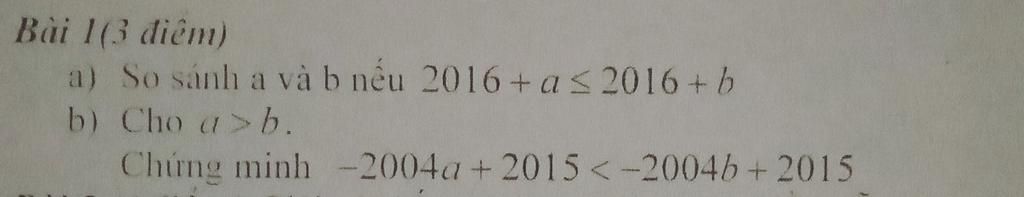 Bài 1(3 điểm)
a) So sánh a và b nếu 2016 + a ≤ 2016 + b
b) Cho a > b.
Chứng minh −2004a + 2015 < −2004b + 2015